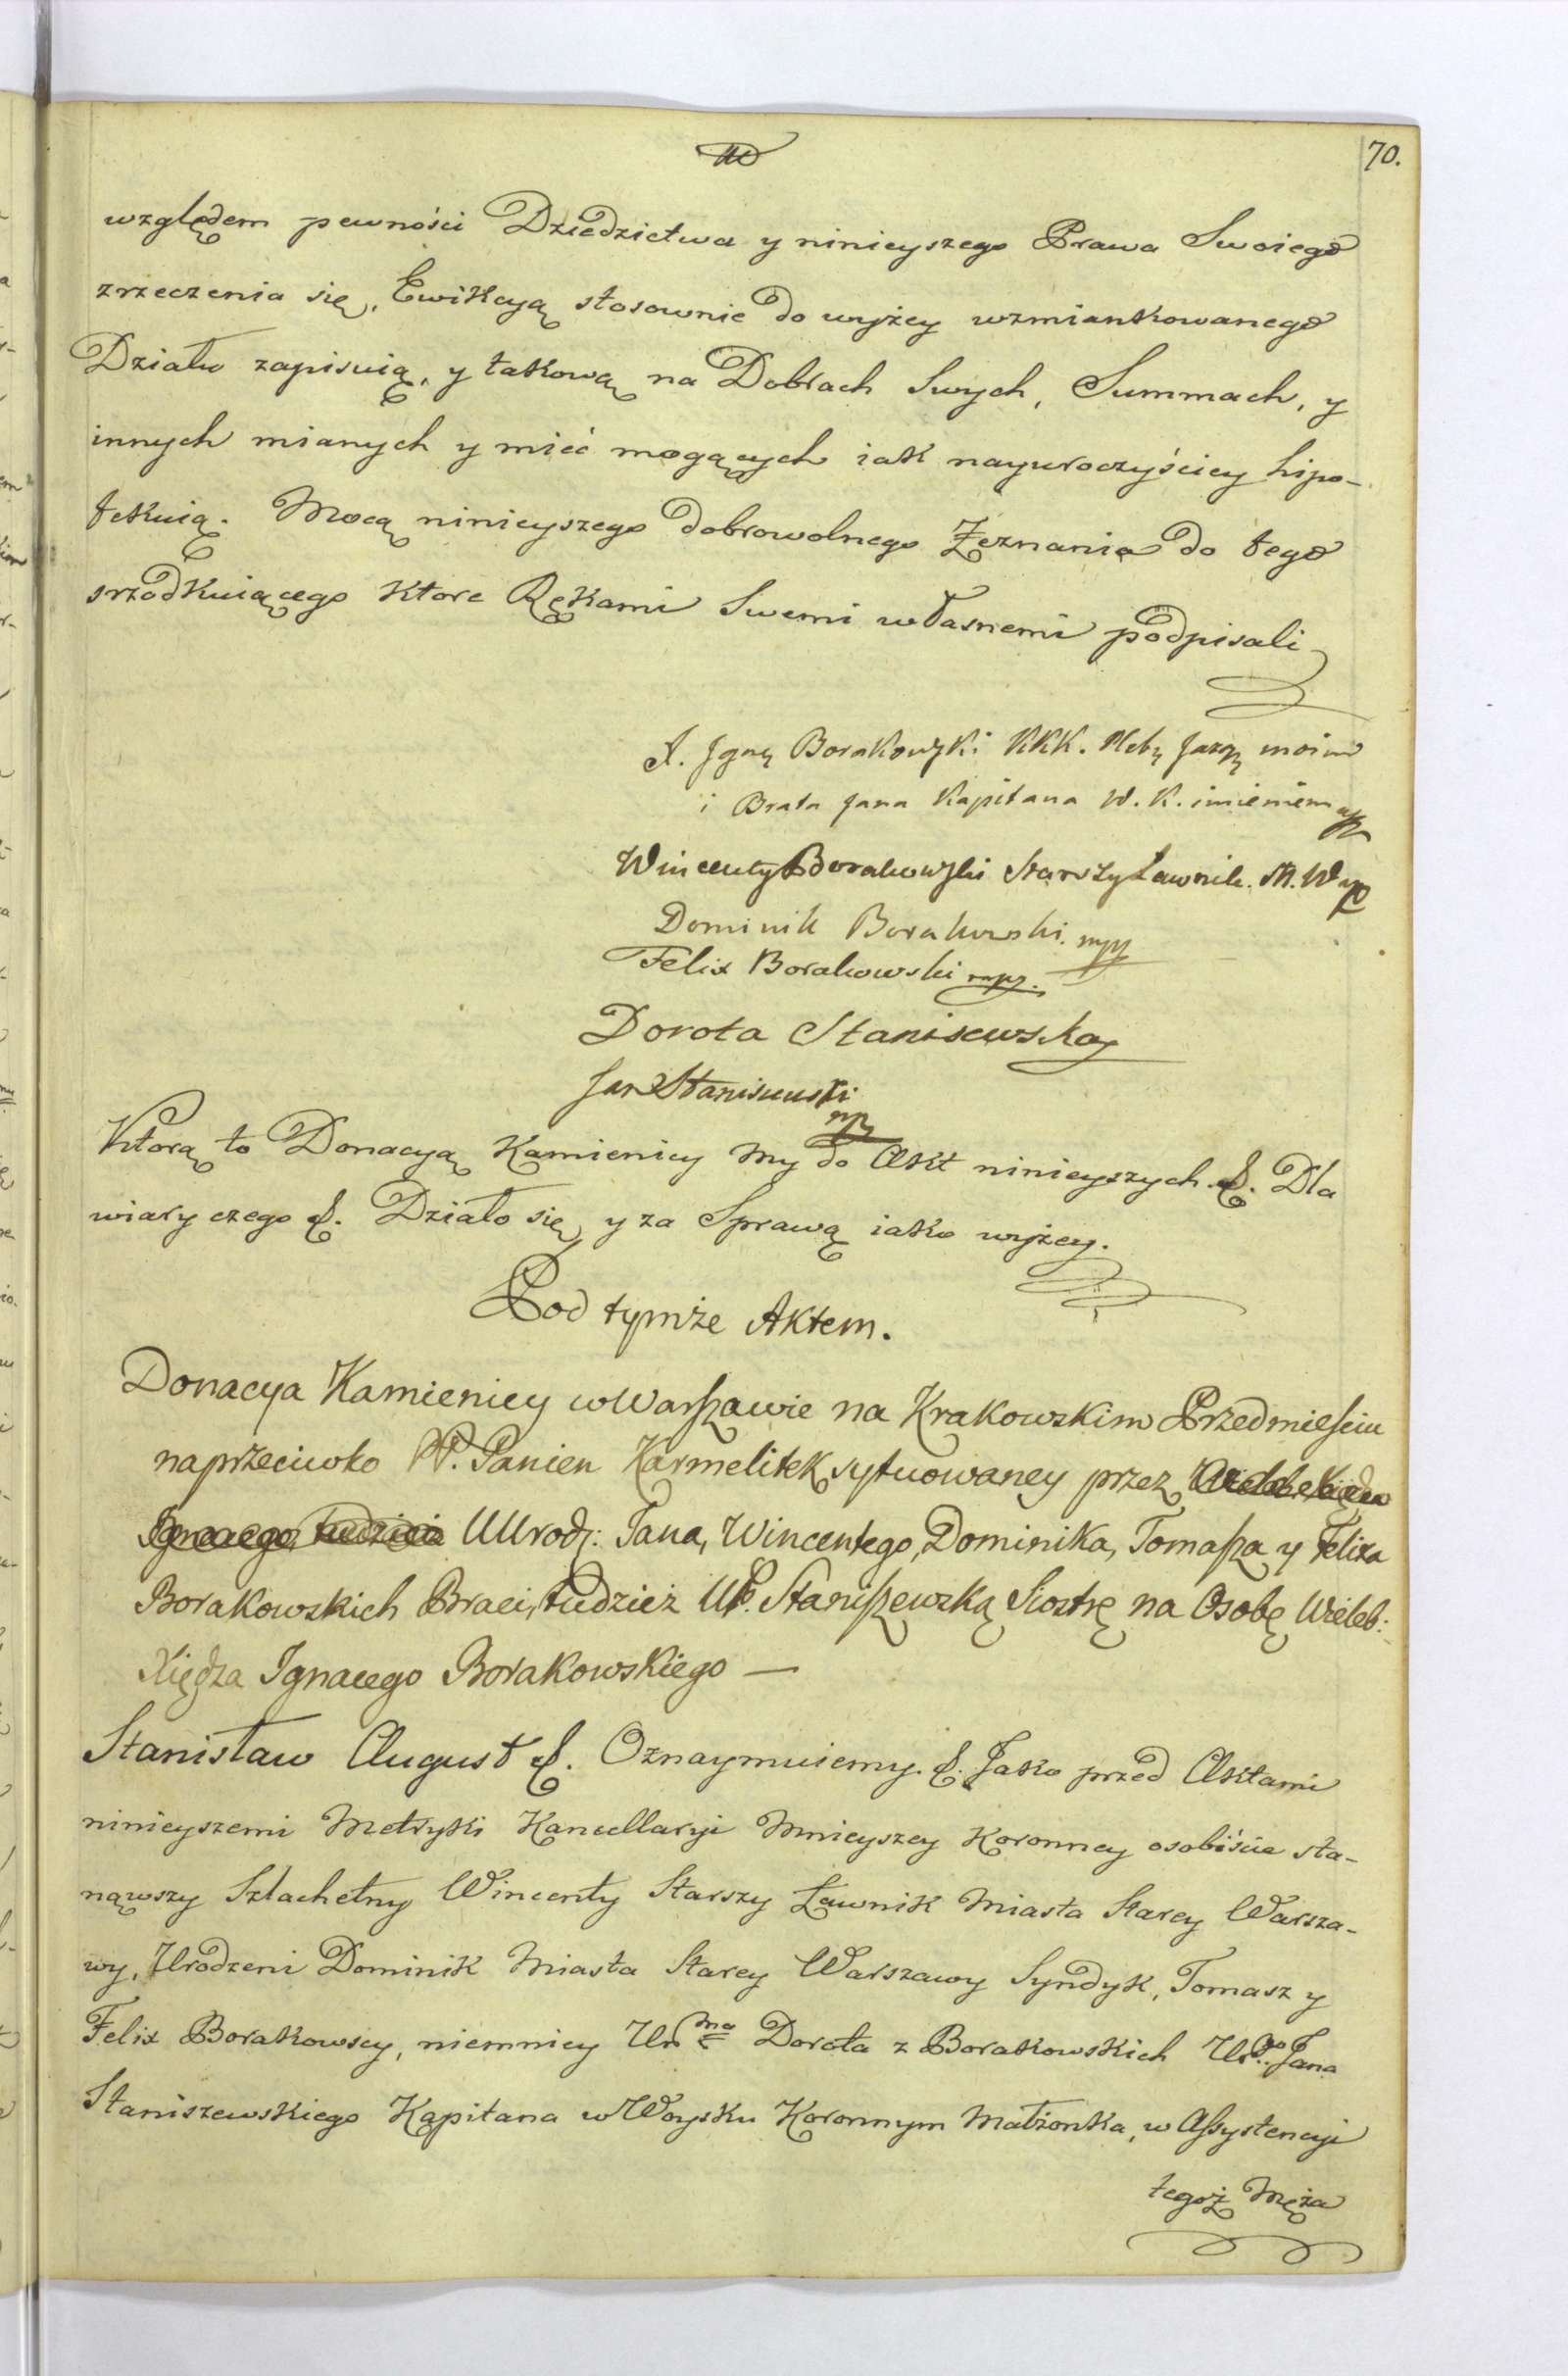 70.
względem pewności Dziedzictwa y ninieyszego Prawa Swoiego
zrzeczenia się, Ewikcyą stosownie do wyżey wzmiankowanego
Działu zapisuią, y takową na Dobrach Swych, Summach, y
innych mianych y mieć mogących iak nayuroczyściey hipo-
tekuią. Mocą ninieyszego dobrowolnego Zeznania do tego
srzodkuiącego Ktore Rękami Swemi własnemi podpisali
X. Ignẏ Borakowski KKK. Pleb. moim
i Brata Jana Kapitana W. K. imieniem mp
Wincenty Borakowski Starszy Ławnik. M. W mp
Dominik Borakowski mpp
Felix Borakowski mpp.
Dorota Staniszewska
Jan Staniszewski
mp
Ktorą to Donacyą Kamienicy my do Akt ninieyszych &. Dla
wiary czego &. Działo się y za Sprawą iako wyżey.
Pod tymże Aktem.
Donacya Kamienicy w Warszawie na Krakowskim Przedmieściu
naprzeciwko W. Panien Karmelitek sytuowaney przez Wieleb: Xiędza
Ignacego, tudzież UUrodz: Jana, Wincentego, Dominika, Tomasza y Felixa
Borakowskich Braci, tudzież UP. Staniszewską Siostrę na Osobę Wieleb:
Xiędza Ignacego Borakowskiego —
Stanisław August &. Oznaymuiemy. &. Jako przed Aktami
ninieyszemi Metryki Kancellaryi Mnieyszey Koronney osobiście sta-
nąwszy Szlachetny Wincenty Starszy Ławnik Miasta Starey Warsza-
wy, Urodzeni Dominik Miasta Starey Warszawy Syndyk, Tomasz y
Felix Borakowscy, niemniey Ur.na Dorota z Borakowskich Ur.go Jana
Staniszewskiego Kapitana w Woysku Koronnym Małżonka, w Assystencyi
tegoż Męża